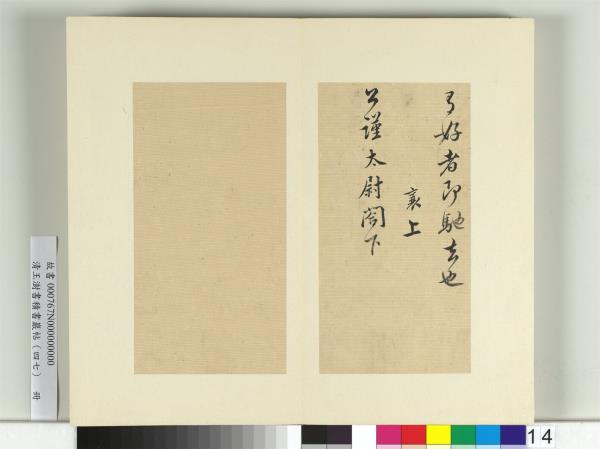 有好者即馳去也
襄上
公謹太尉閣下
故書000767N000000000
清王澍書積書巖帖（四七） 冊
14